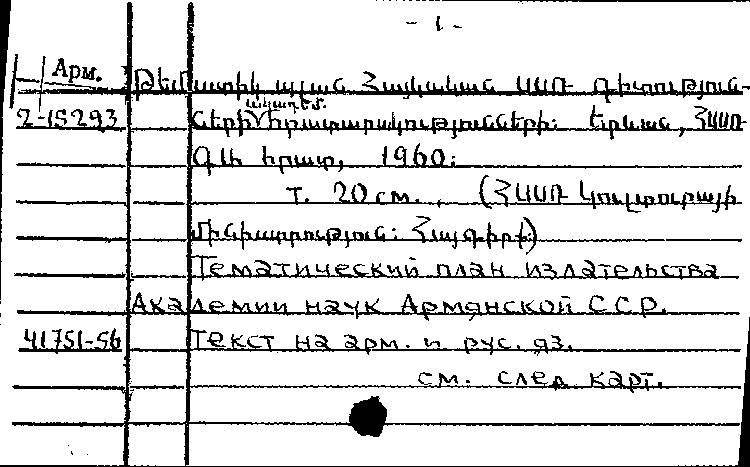 - 1 -
Арм. Թեմատիկ պլան Հայկական ՍՍՌ գիտություն-
ակադեմ.
2-15293 ների հրատարակությունների: Երևան, ՀՍՍՌ
ԳԱ հրատ, 1960:
т. 20 см., (ՀՍՍՌ Կուլտուրայի
մինիստրություն: Հայգիրք)
Тематический план издательства
Академии наук Армянской ССР.
41751-56 Текст на арм. и рус. яз.
см. след. карт.